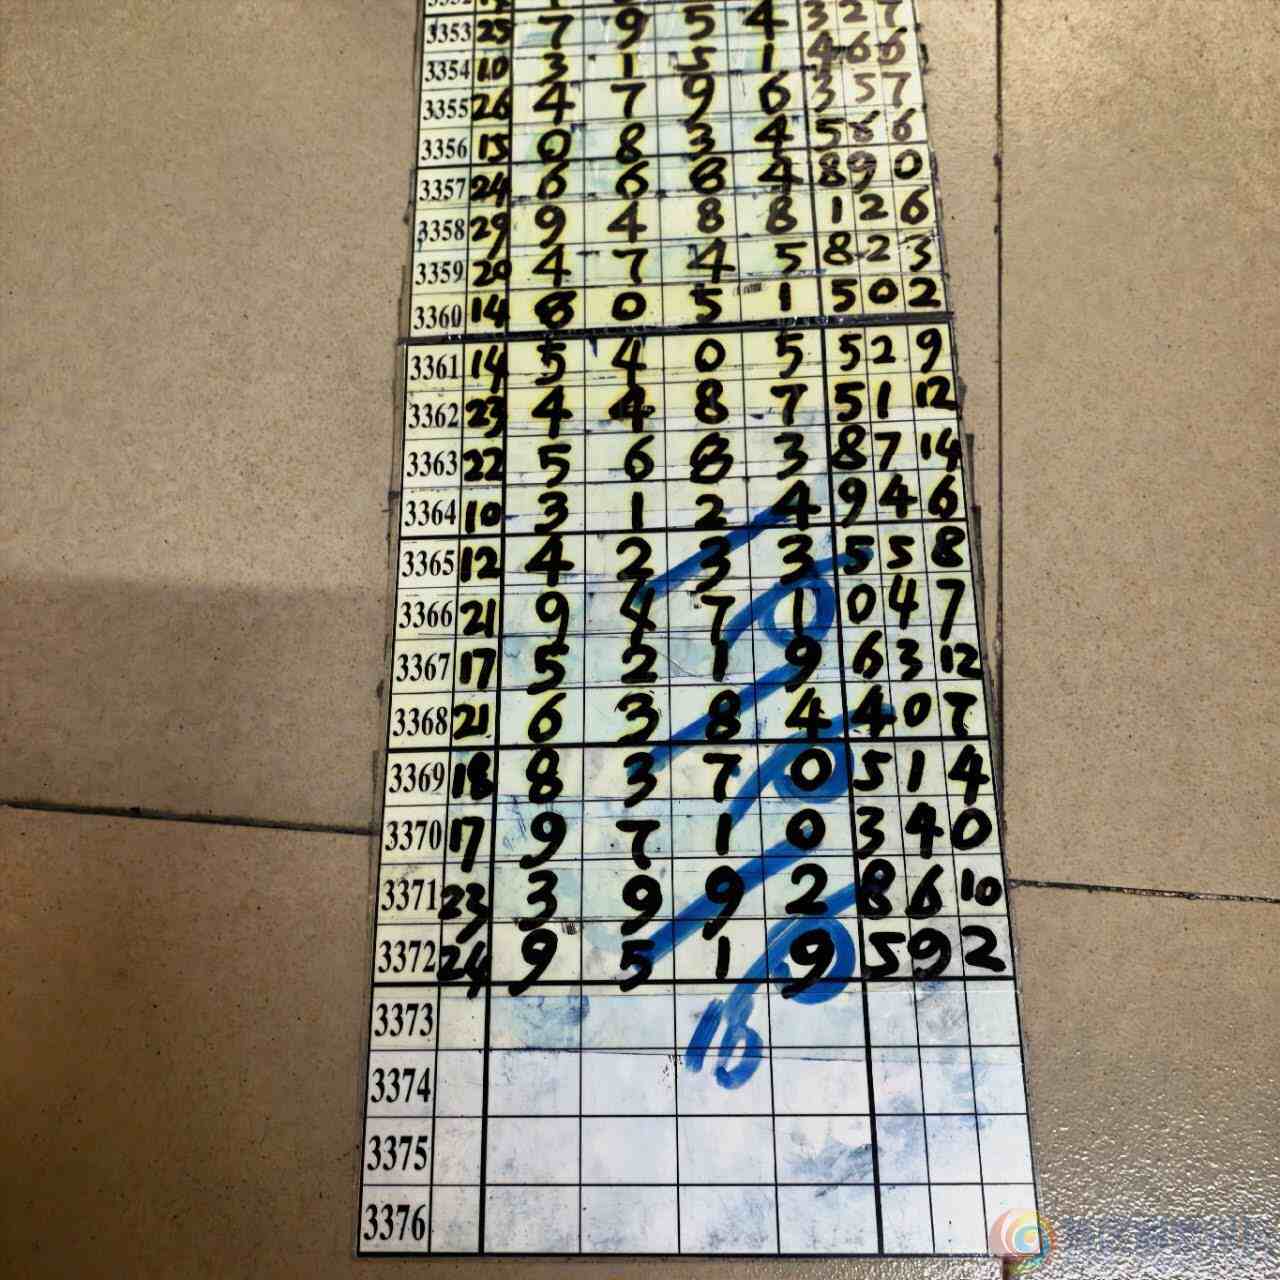 3353 25 7 9 5 4 3 2 7
3354 10 3 1 5 1 4 6 6
3355 26 4 7 9 6 3 5 7
3356 15 0 8 3 4 5 6 6
3357 24 6 6 8 4 8 9 0
3358 29 9 4 8 8 1 2 6
3359 20 4 7 4 5 8 2 3
3360 14 8 0 5 1 5 0 2
3361 14 5 4 0 5 5 2 9
3362 23 4 4 8 7 5 1 12
3363 22 5 6 8 3 8 7 14
3364 10 3 1 2 4 9 4 6
3365 12 4 2 3 3 5 5 8
3366 21 9 4 7 1 0 4 7
3367 17 5 2 1 9 6 3 12
3368 21 6 3 8 4 4 0 7
3369 18 8 3 7 0 5 1 4
3370 17 9 7 1 0 3 4 0
3371 23 3 9 9 2 8 6 10
3372 24 9 5 1 9 5 9 2
3373
3374
3375
3376